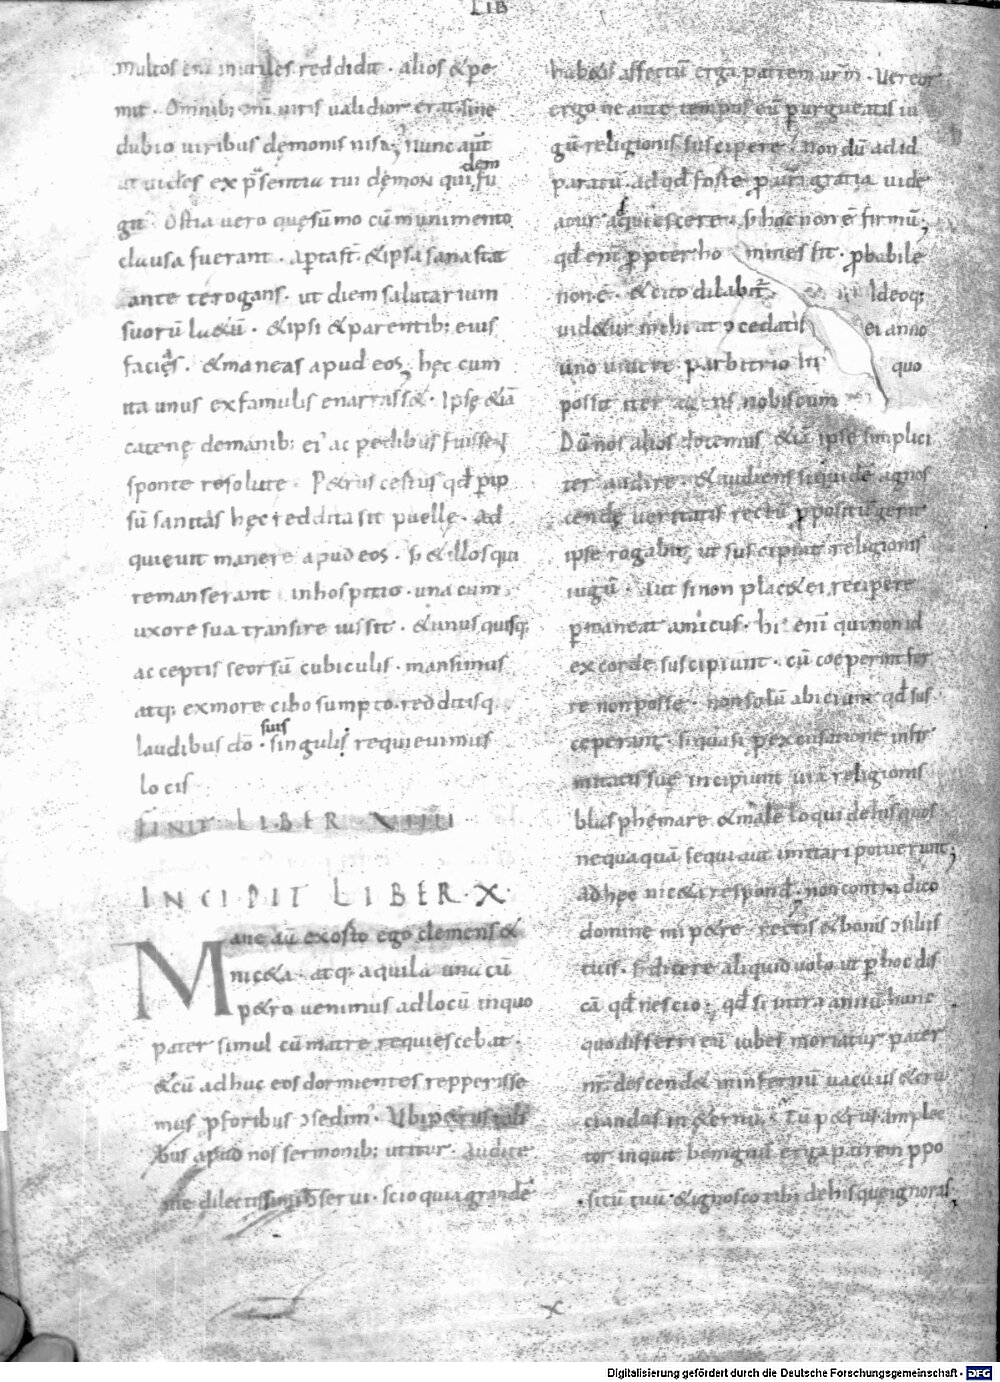 LIB
multos eni inutiles reddidit · alios & pe
mit · Omnib; eni uiris ualidior erat · sine
dubio uiribus demonis nisa; Nunc aut
ut uides ex psentia tui demon qui dem fu
git · Ostia uero quę sumo cu munimento
clausa fuerant · apta st · & ipsa sana stat
ante te rogans · ut diem salutarium
suorū lu&ū · & ipsi & parentib; eius
facies · & maneas apud eos, hęc cum
ita unus ex famulis enarrass& · Ipsę &iā
catenę de manib; ei' ac pedibus fuissent
sponte resolute · P&rus certus qđ p ip
sū sanitas hęc reddita sit puelle · ad
quieuit manere apud eos · s; & illos qui
remanserant in hospitio · una cum
uxore sua transire iussit · & unusquisq;
acceptis seorsū cubiculis · mansimus
atq; ex more cibo sumpto · redditisq
laudibus dō · singulis suis requieuimus
locis
FINIT LIBER VIIII
INCIPIT LIBER · X ·
Mane aū exorto ego clemens &
nic&a · atq; aquila una cū
p&ro uenimus ad locū in quo
pater simul cū matre requiescebat ·
& cū adhuc eos dormientes repperisse
mus p foribus ɔsedim' · Ubi p&rus talibus
apud nos sermonib; utitur · Audite
me dilectissimi ɔserui · scio quia grandē
hab&is affectū erga patrem urm · Uereor
ergo ne ante tempus eū purgueatis iu
gū religionis suscipere · non dū ad id
paratū · ad qđ forte p uram gratia uide
atur adquiescere · s; hoc non ē firmū;
qđ eni ppter homines fit · pbabile
non ē · & cito dilabit · Ideoq;
uid&ur mihi ut ɔcedatis ei anno
uno uiuere p arbitrio quo
possit iter agens nobiscum
Dū nos alios docemus &iā ipse simplici
ter audire · & audiens siquidē agnos
cendę ueritatis rectū ppositū gerit
ipse rogabit ut suscipiat religionis
iugū · Aut si non plac& ei recipere
pmaneat amicus · hi eni qui non id
ex corde suscipiunt · cū coeperint fer
re non posse · non solū abiciunt qđ sus
ceperant · s; quasi p excusatione infir
mitatis suę incipiunt uiā religionis
blasphemare & male loqui de his quos
nequaquā sequi aut imitari potuerunt;
ad hęc nic&a respond · non contradico
domine mi p&re rectis & bonis ɔsiliis
tuis · s; dicere aliquid uolo ut p hoc dis
cā qđ nescio · qđ si intra annū hunc
quo differri eū iubes moriatur pater
nr · descend& in infernū uacuus & cru
ciandus in &ernū · Tū p&rus amplec
tor inquit benignū erga patrem ppo
sitū tuū · & ignosco tibi de his que ignoras;
X
Digitalisierung gefördert durch die Deutsche Forschungsgemeinschaft · DFG